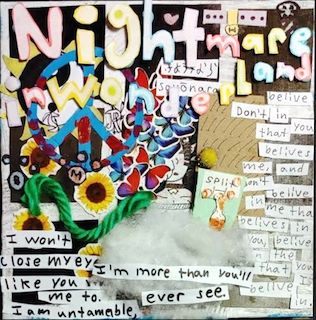 Nightmare
in wonderland
さようなら
sayonara
belive
Don't in
that you
belives
me, and
belive
in me tha
belives in
you, belive
in the
that you
belive
in.
Split
I won't
close my eye
like you
me to.
I am untamable
I'm more than you'll
ever see.